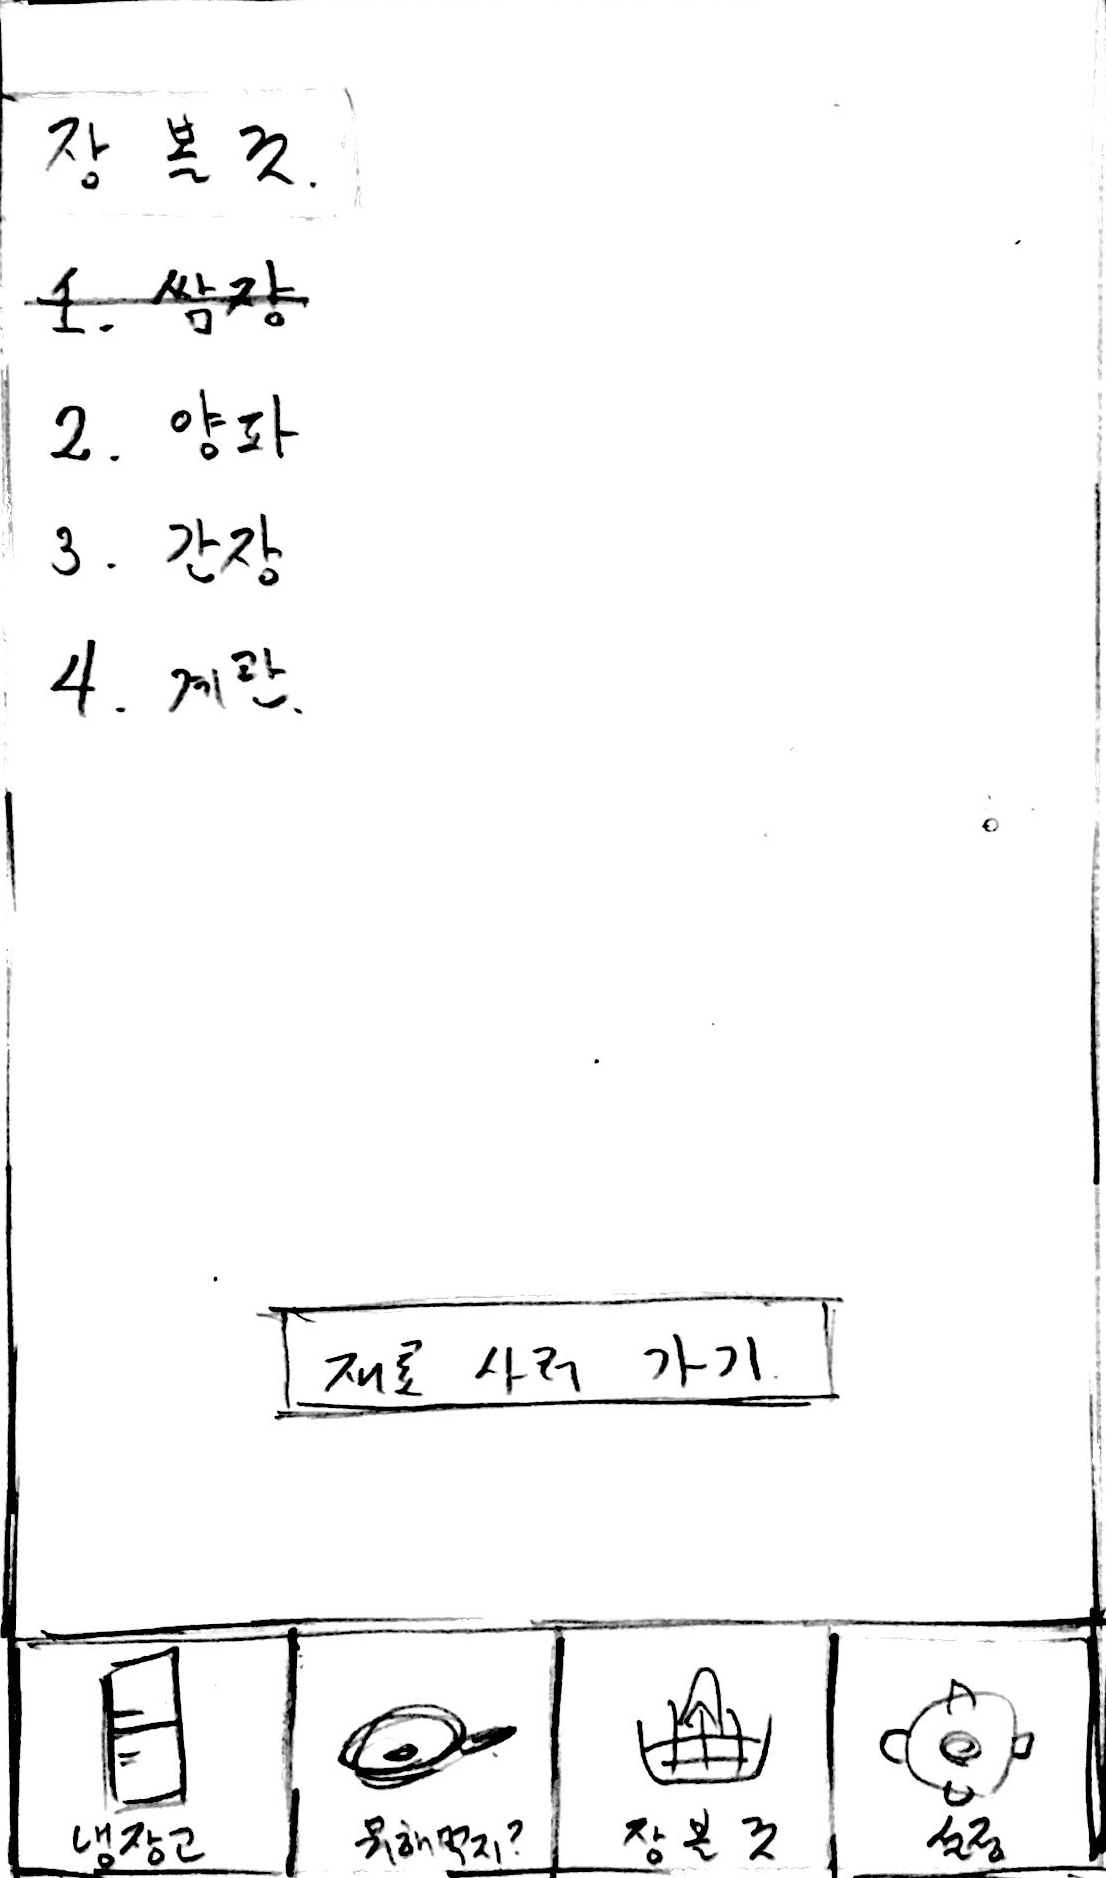 장 볼 것.
1. 쌈장
2. 양파
3. 간장
4. 계란.
재료 사러 가기.
냉장고 뭐해먹지? 장 볼 것 설정